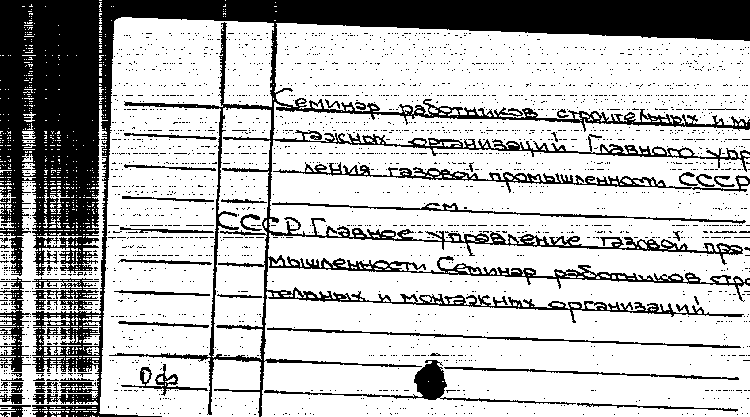 Семинар работников строительных и мо
тажных организаций Главного упр
ления газовой промышленности СССР
см.
СССР. Главное управление газовой про-
мышленности. Семинар работников стро
тельных и монтажных организаций.
Оф